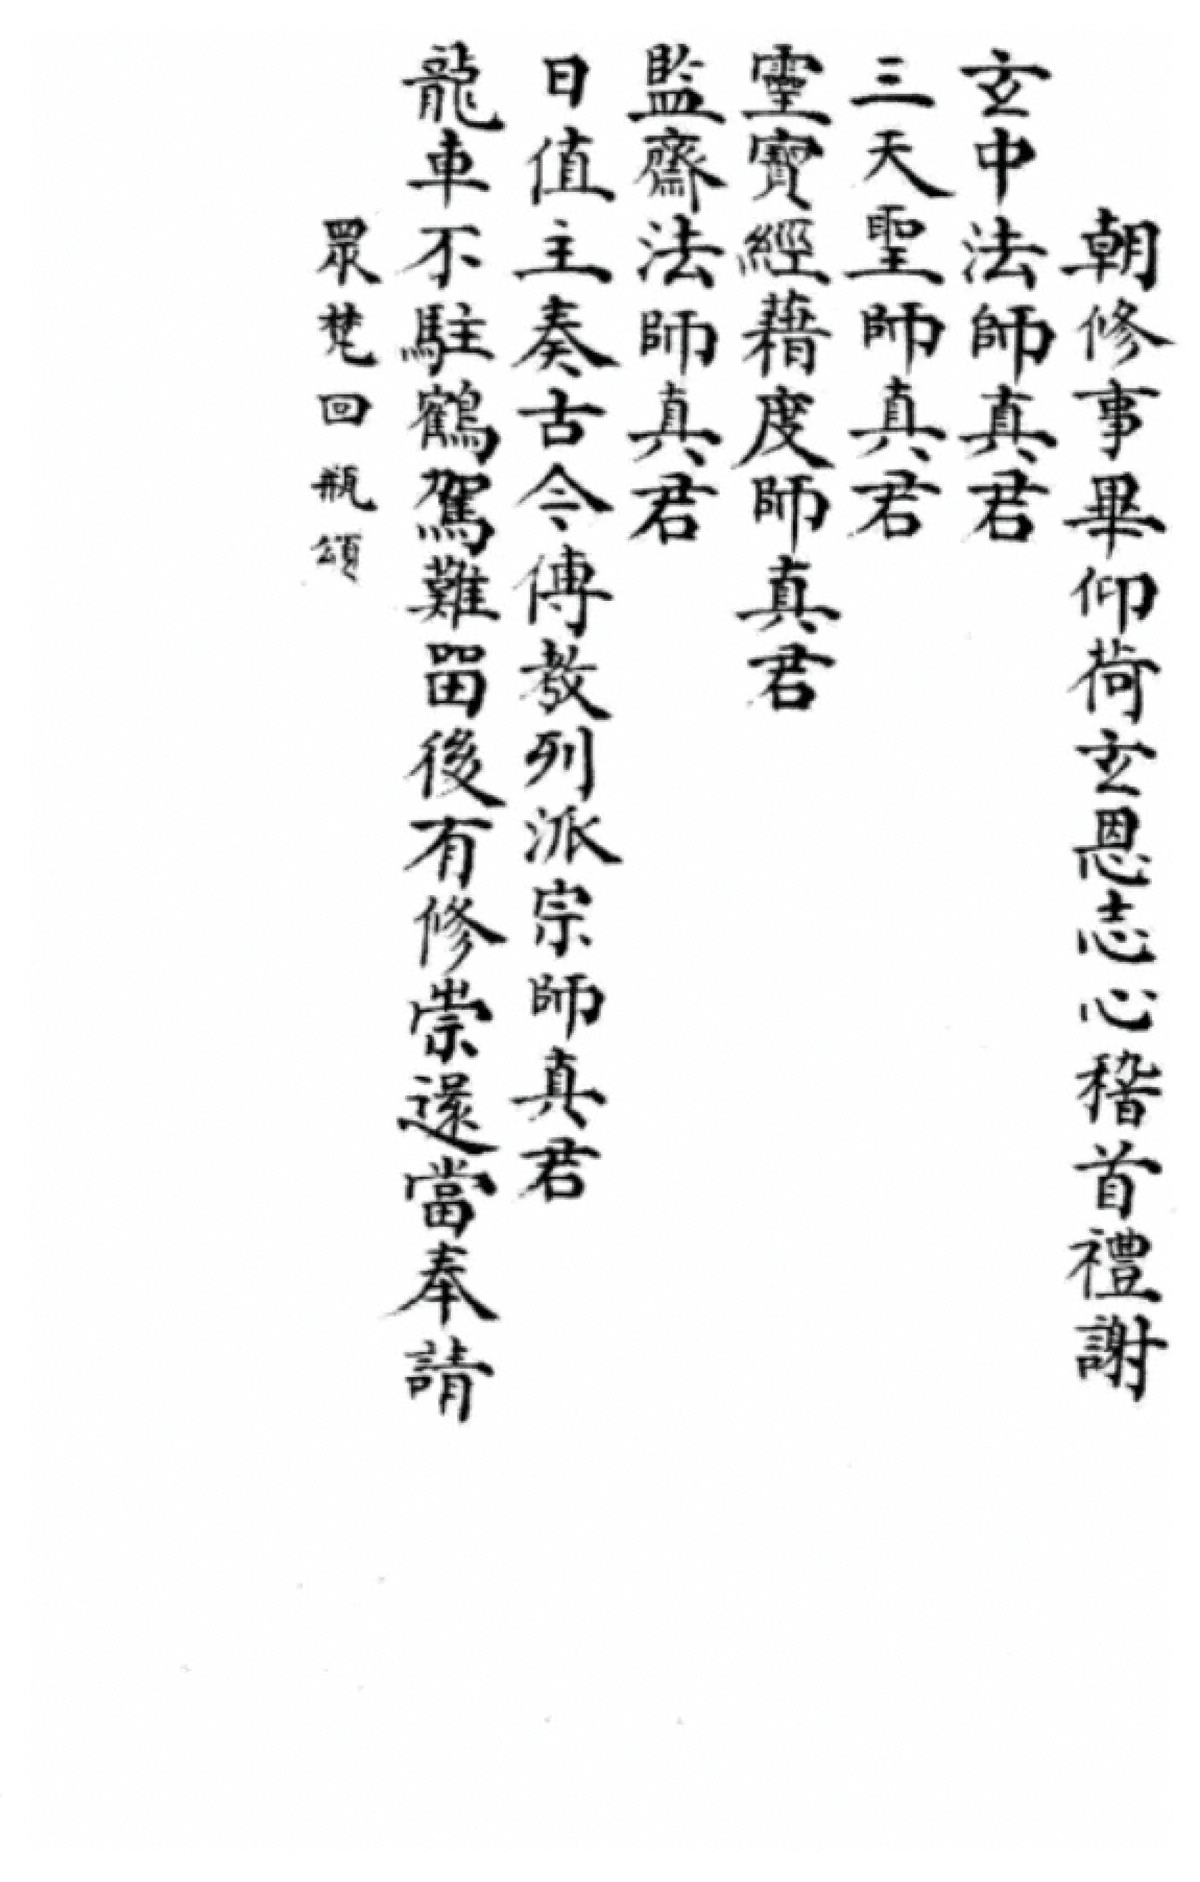 朝修事畢仰荷玄恩志心稽首禮謝
玄中法師真君
三天聖師真君
靈寶經藉度師真君
監齋法師真君
日值主奏古今傳教列派宗師真君
龍車不駐鶴駕難留後有修崇還當奉請
眾梵回瓶頌